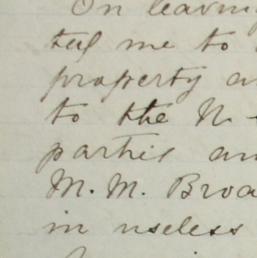 On leaving
tell me to
property an
to the N
parties an
M. M. Broa
in useless